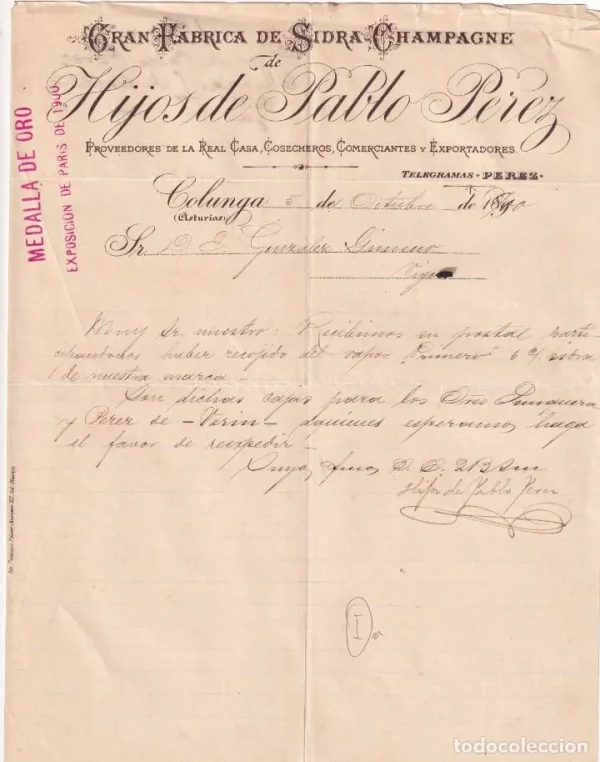 GRAN FÁBRICA DE SIDRA CHAMPAGNE
de
Hijos de Pablo Perez
PROVEEDORES DE LA REAL CASA, COSECHEROS, COMERCIANTES Y EXPORTADORES.
TELEGRAMAS - PEREZ -
MEDALLA DE ORO
EXPOSICIÓN DE PARIS DE 1900
Colunga 5 de Octubre de
(Asturias)
Sr. D. E. González
Vigo
Muy Sr. nuestro: Recibimos su postal parti-
haber recojido del vapor "Primero" 6 c/ sidra
de nuestra marca.
Son dichas cajas para los Sres
y Perez de - Verin - quienes esperamos haga
el favor de reexpedir -
Suyos
Hijos de Pablo Perez
I
todocoleccion